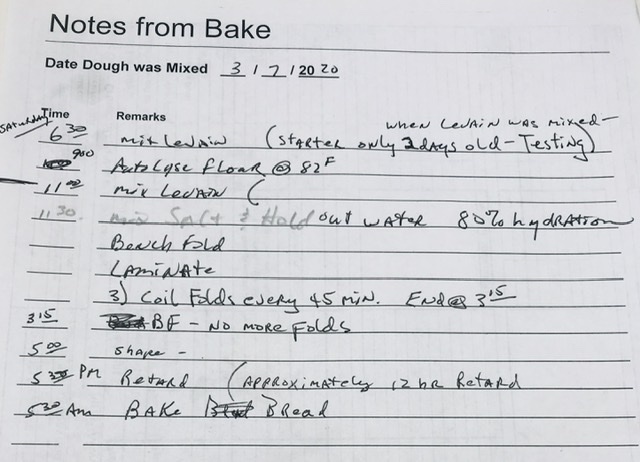 Notes from Bake
Date Dough was Mixed 3 / 7 / 20 20
Time Remarks
SATURDAY when Levain was mixed-
6 30 mix Levain (STARTER only 2 days old - Testing)
900 Autolyse flour @ 82 F
11 00 mix Levain (
11 30 mix Salt & Hold out water 80% hydration
Bench Fold
Laminate
3) Coil Folds every 45 min. End @ 3 15
3 15 BF - no more Folds
5 00 shape -
PM Retard (Approximately 12 hr Retard
5 30 Am BAKE Bread